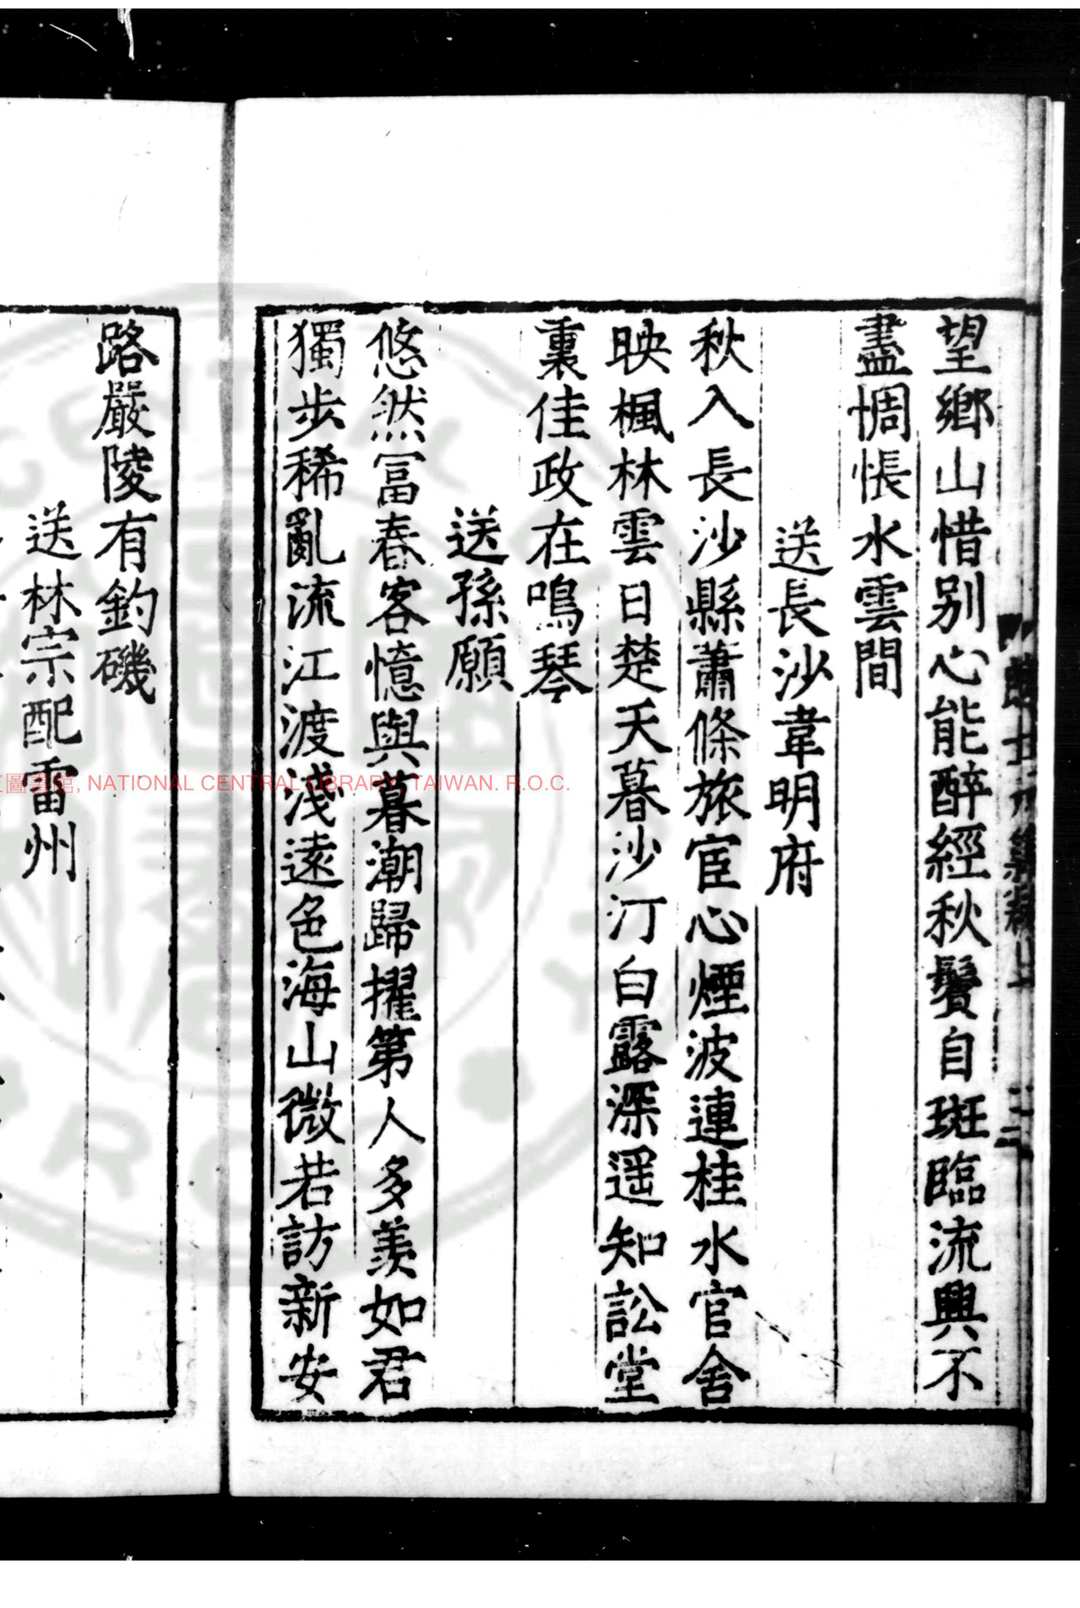 望鄉山惜別心能醉經秋鬢自斑臨流興不
盡惆悵水雲間
送長沙韋明府
秋入長沙縣蕭條旅宦心煙波連桂水官舍
映楓林雲日楚天暮沙汀白露深遥知訟堂
裏佳政在鳴琴
送孫願
悠然冨春客憶與暮潮歸擢第人多羨如君
獨步稀亂流江渡淺遠色海山微若訪新安
路嚴陵有釣磯
送林宗配雷州
NATIONAL CENTRAL LIBRARY, TAIWAN. R.O.C.